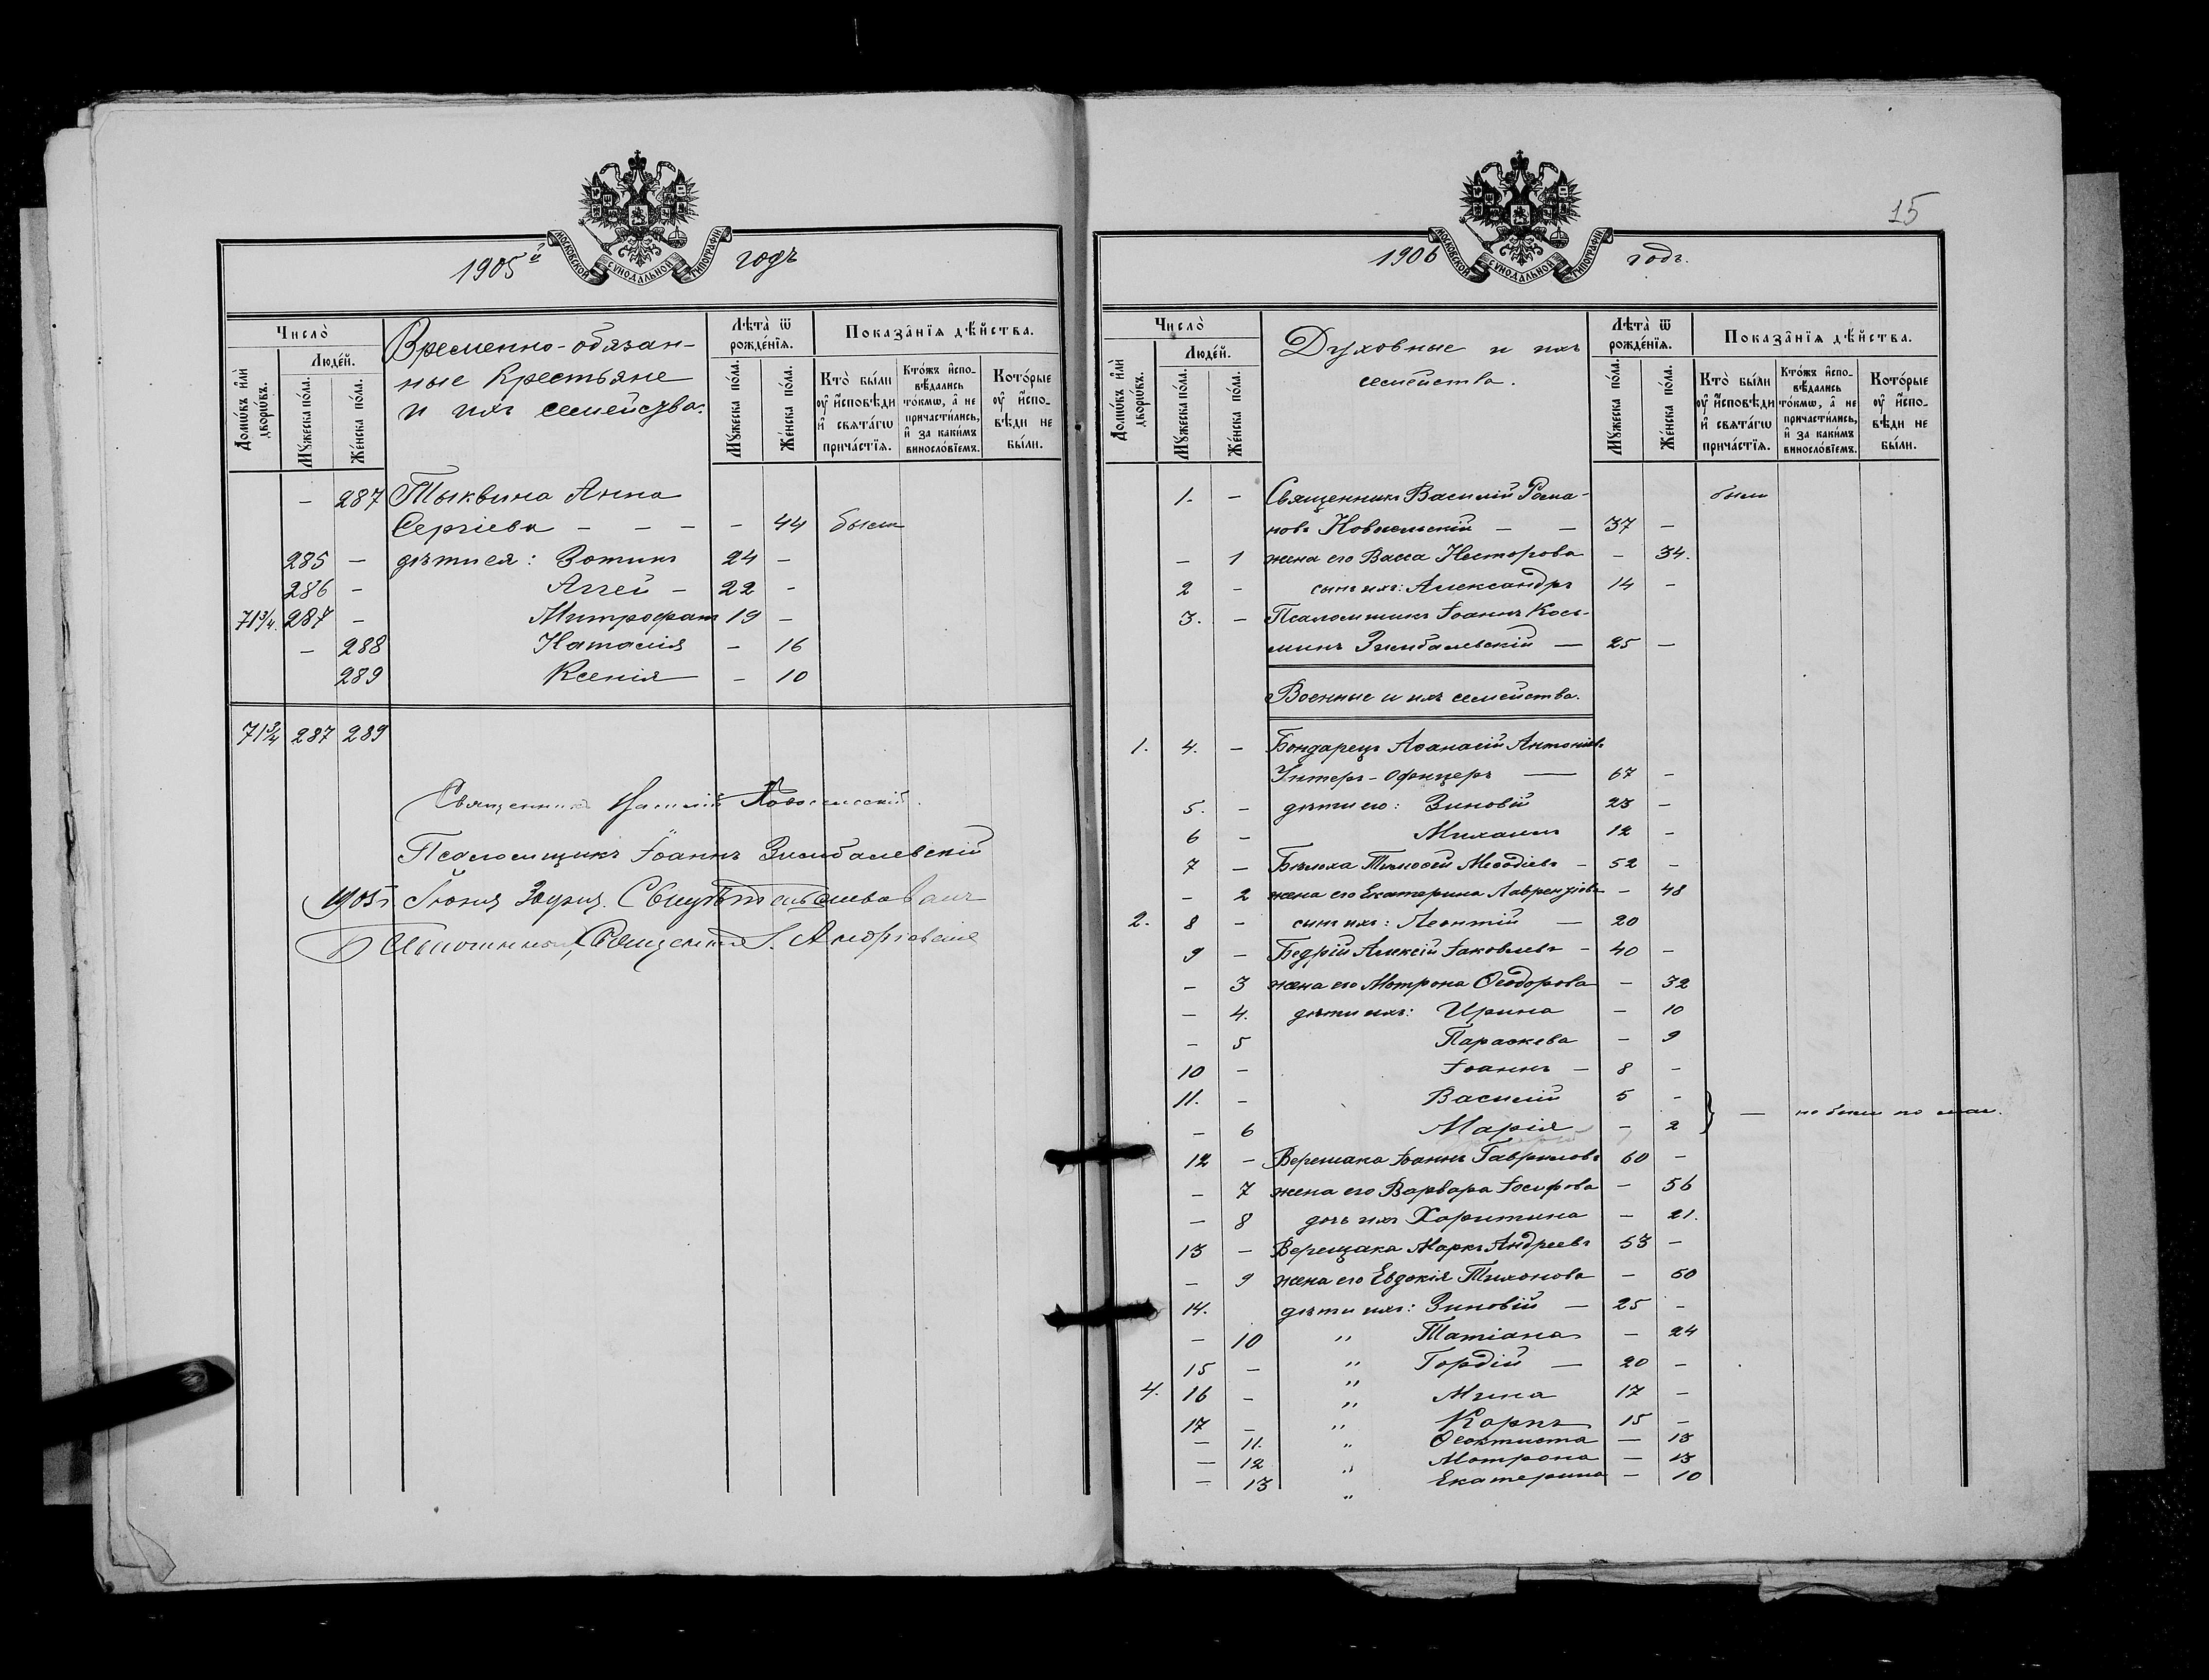 1905й годъ
МОСКОВСКОЙ СѴНОДАЛЬНОЙ ТИПОГРАФІИ
Число̀
Людей.
Домѡ́въ и҆лѝ дворѡ́въ.
Мꙋ́жеска по́ла.
Же́нска по́ла.
Временно-обязан-
ные крестьяне
и ихъ семейства.
Лѣта̀ ѿ рожде́нїѧ.
Мꙋ́жеска по́ла.
Же́нска по́ла.
Показа̑нїѧ дѣ́йства.
Кто̀ бы́ли оу҆ и҆сповѣ́ди и҆ свѧта́гѡ прича́стїѧ.
Кто́жъ и҆спо-вѣ́дались то́кмѡ, а҆ не причасти́лись, и҆ за каки́мъ виносло́вїемъ.
Кото́рые оу҆ и҆спо-вѣ́ди не бы́ли.
– 287 Тыквина Анна
Сергіева – – – – 44 были
285 – дѣти ея: Зотикъ 24 –
286 – Аггей – 22 –
71¾. 287 – Митрофанъ 19 –
– 288 Наталія – 16
289 Ксенія – 10
71¾ 287 289
Священникъ Василій Новосельскій.
Псаломщикъ Іоаннъ Зимбалевскій
1905 г. Іюня 3 дня. Свидѣтельствовалъ
Благочинный, Священникъ
15
1906 годъ.
МОСКОВСКОЙ СѴНОДАЛЬНОЙ ТИПОГРАФІИ
Число̀
Людей.
Домѡ́въ и҆лѝ дворѡ́въ.
Мꙋ́жеска по́ла.
Же́нска по́ла.
Духовные и ихъ
семейства.
Лѣта̀ ѿ рожде́нїѧ.
Мꙋ́жеска по́ла.
Же́нска по́ла.
Показа̑нїѧ дѣ́йства.
Кто̀ бы́ли оу҆ и҆сповѣ́ди и҆ свѧта́гѡ прича́стїѧ.
Кто́жъ и҆спо-вѣ́дались то́кмѡ, а҆ не причасти́лись, и҆ за каки́мъ виносло́вїемъ.
Кото́рые оу҆ и҆спо-вѣ́ди не бы́ли.
1. – Священникъ Василій Рома- были
новъ Новосельскій – – 37 –
– 1 жена его Васса Несторова – 34.
2 – сынъ ихъ: Александръ 14 –
3. – Псаломщикъ Іоаннъ Кось-
минъ Зимбалевскій – 25 –
Военные и ихъ семейства.
1. 4. – Бондарецъ Аѳанасій Антоніевъ
Унтеръ-Офицеръ – 67 –
5. – дѣти его: Зиновій 23 –
6 – Михаилъ 12 –
7 – Бѣлоха Тимоѳей Меѳодіевъ – 52 –
– 2 жена его Екатерина Лаврентіева – 48
2. 8 – сынъ ихъ: Леонтій – 20
9 – Бедрій Алексій Іаковлевъ – 40 –
– 3 жена его Мотрона Ѳеодорова – 32
– 4. дѣти ихъ: Ирина – 10
– 5 Параскева – 9
10 – Іоаннъ – 8 –
11. – Василій 5 –
– не были по мал.
– 6 Марія – 2
12 – Верещака Іоаннъ Гавриловъ 60 –
– 7 жена его Варвара Іосифова – 56
– 8 дочь ихъ Харитина – 21.
13 – Верещака Маркъ Андреевъ 53 –
– 9 жена его Евдокія Тихонова – 50
14. дѣти ихъ: Зиновій – 25 –
– 10 " Татіана – 24
15 – " Гордій – 20 –
4. 16 – " Мина 17 –
17 – " Карпъ 15 –
– 11. " Ѳеоктиста – 13
– 12 " Мотрона – 13
– 13 " Екатерина – 10